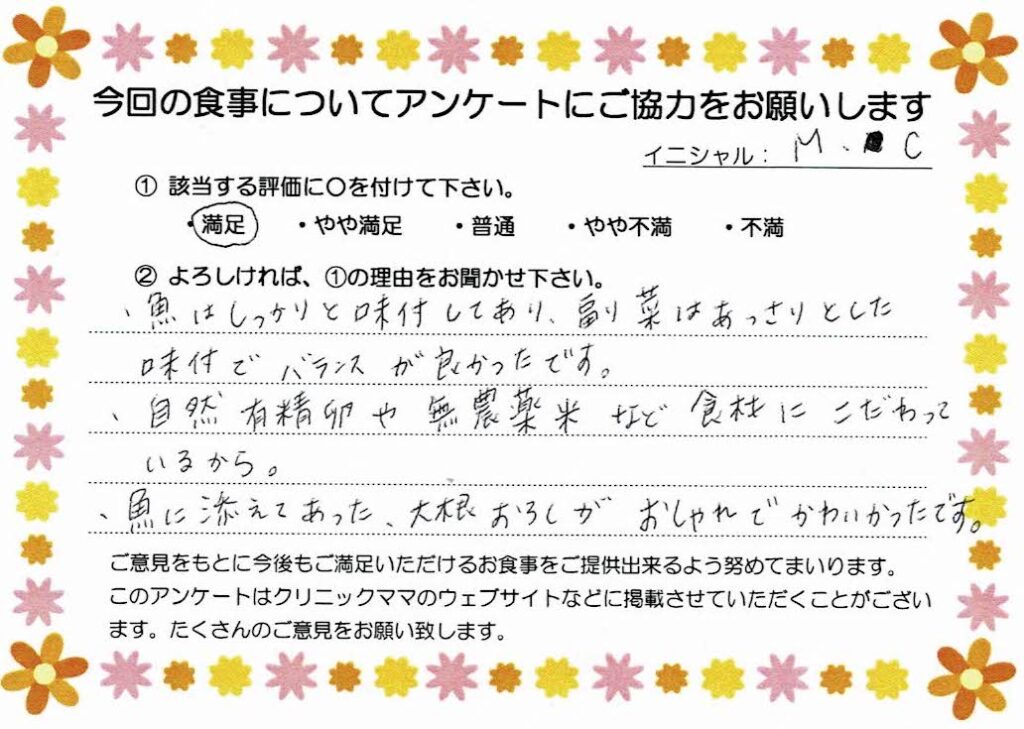 今回の食事についてアンケートにご協力をお願いします
イニシャル： M. C
① 該当する評価に〇を付けて下さい。
・満足 ・やや満足 ・普通 ・やや不満 ・不満
② よろしければ、①の理由をお聞かせ下さい。
、魚はしっかりと味付してあり、副り菜はあっさりとした
味付でバランスが良かったです。
、自然有精卵や無農薬米など食材にこだわって
いるから。
、魚に添えてあった、大根おろしがおしゃれでかわいかったです。
ご意見をもとに今後もご満足いただけるお食事をご提供出来るよう努めてまいります。
このアンケートはクリニックママのウェブサイトなどに掲載させていただくことがござい
ます。たくさんのご意見をお願い致します。